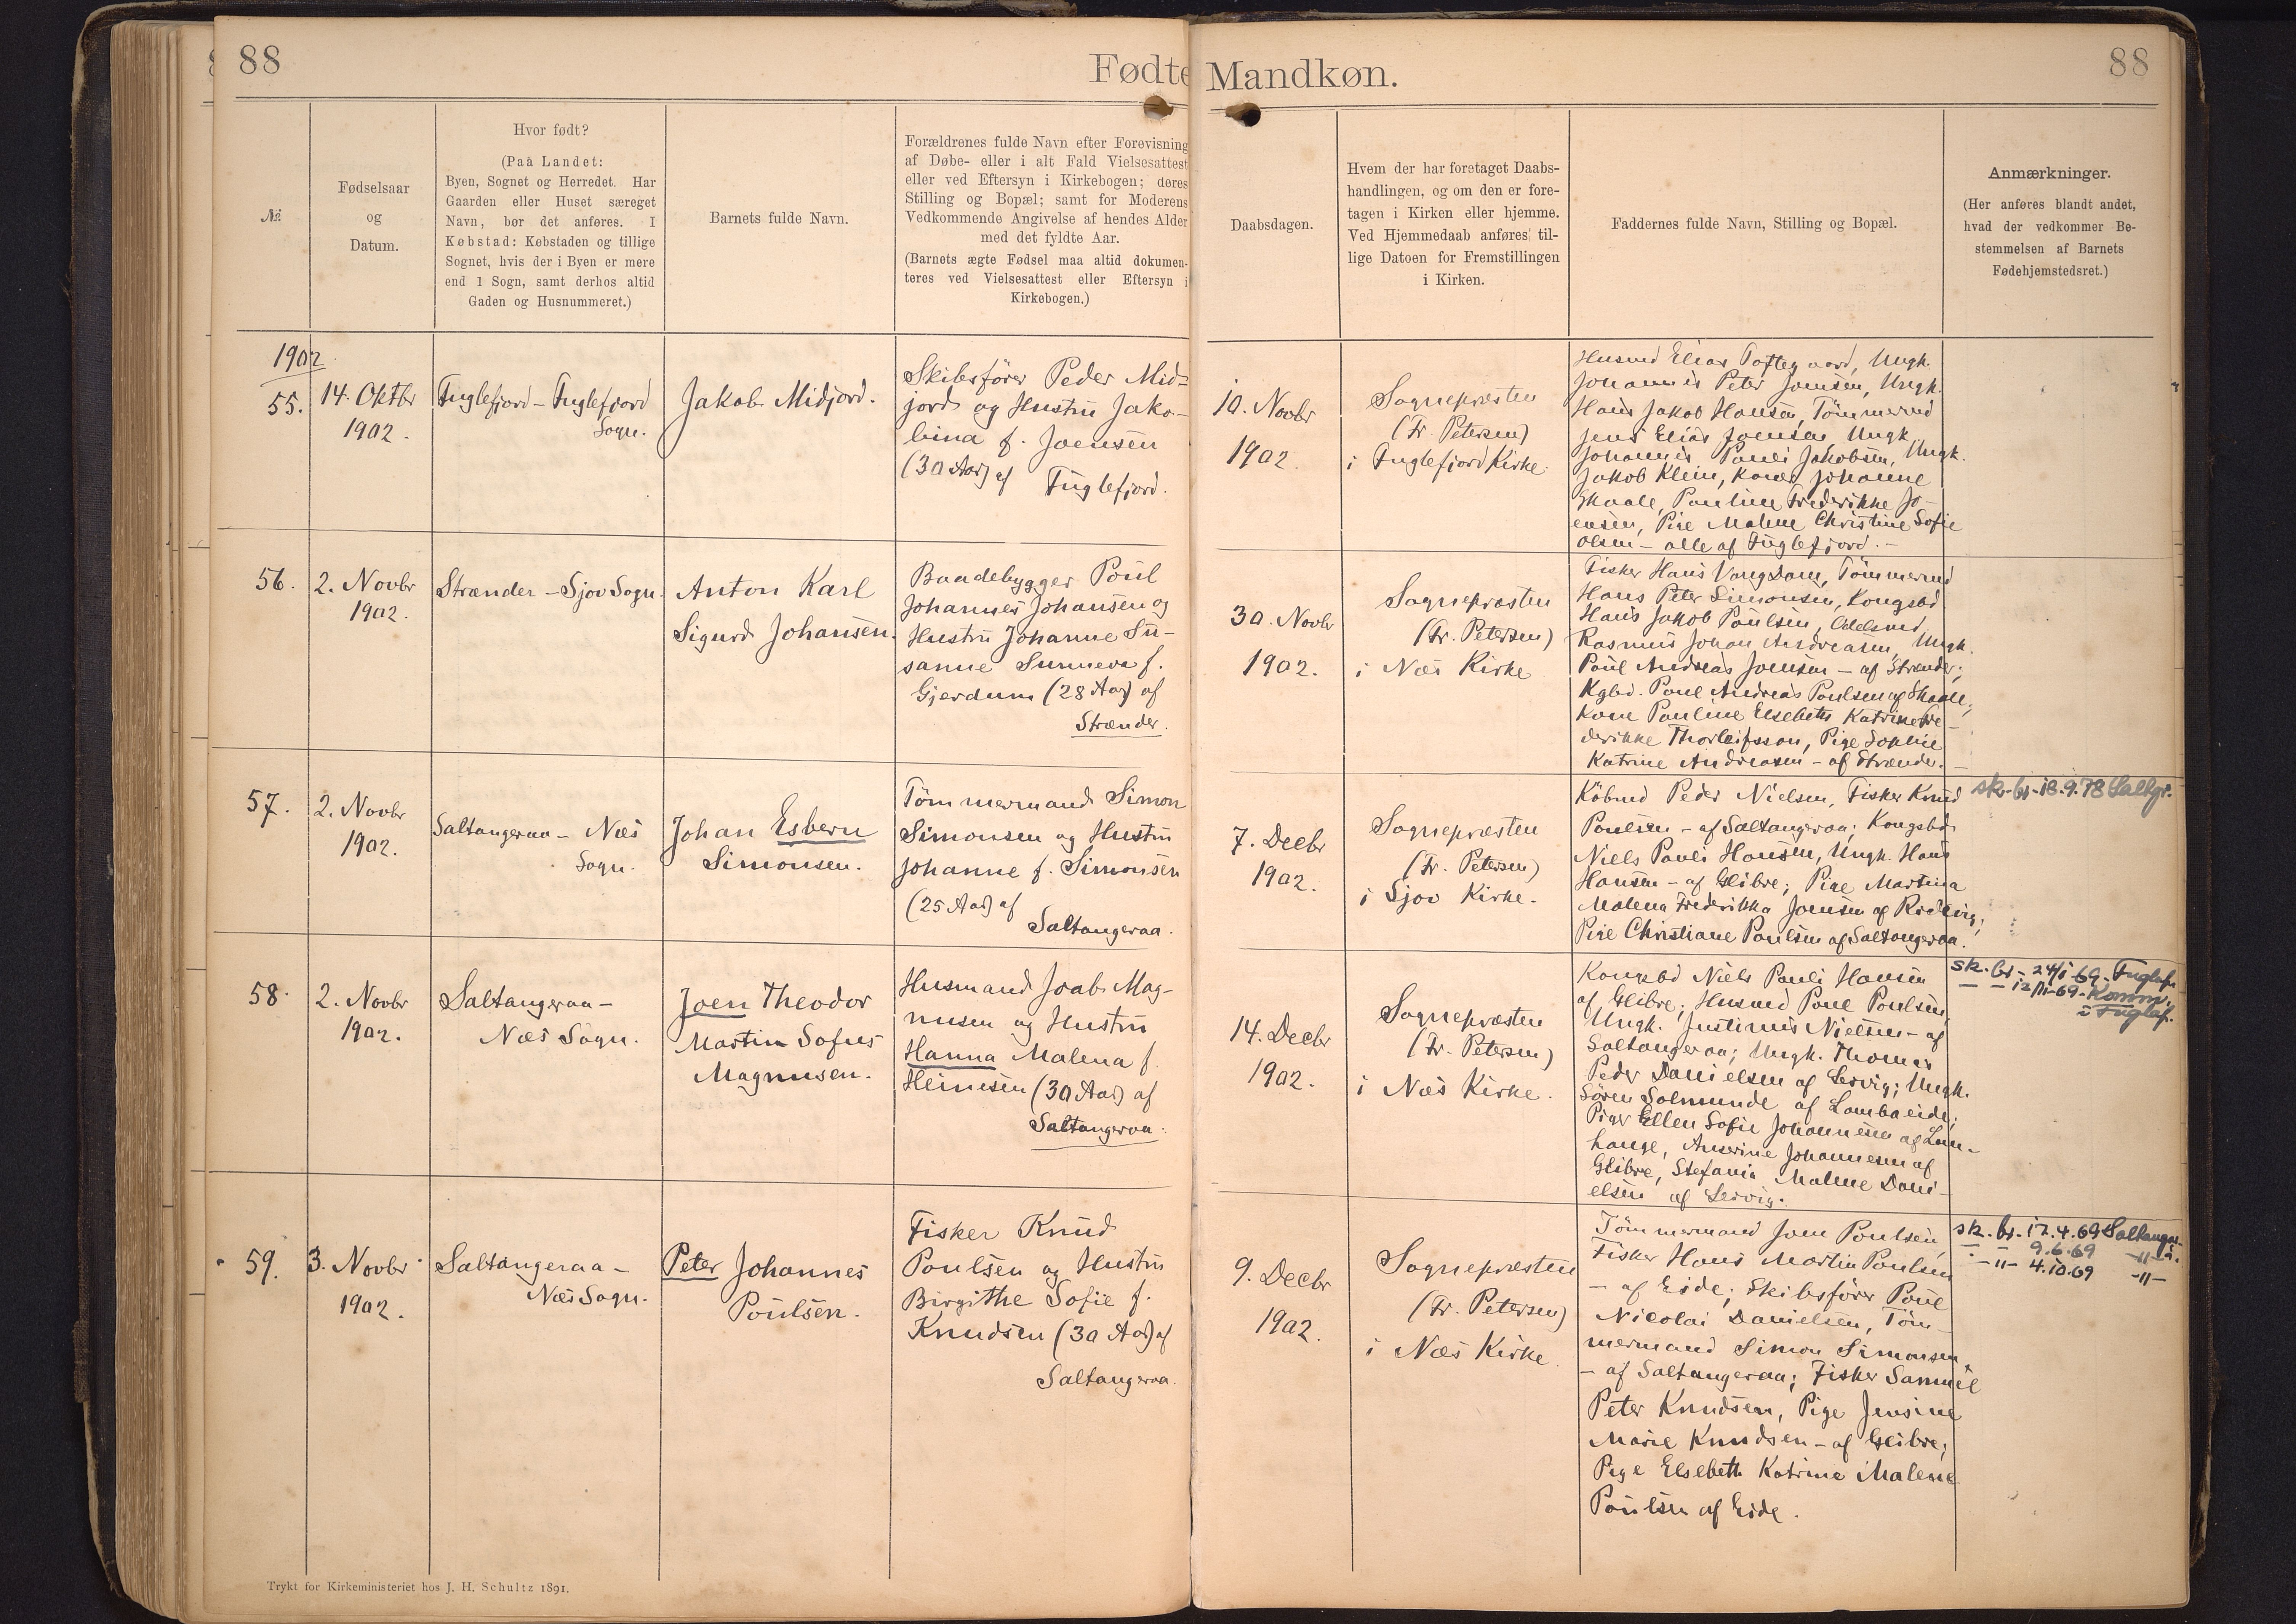 88
Fødte
Mandkøn.
88
№
Fødselsaar
og
Datum.
Hvor født?
(Paa Landet:
Byen, Sognet og Herredet. Har
Gaarden eller Huset særeget
Navn, bør det anføres. I
Købstad: Købstaden og tillige
Sognet, hvis der i Byen er mere
end 1 Sogn, samt derhos altid
Gaden og Husnummeret.)
Barnets fulde Navn.
Forældrenes fulde Navn efter Forevisning
af Døbe- eller i alt Fald Vielsesattest
eller ved Eftersyn i Kirkebogen; deres
Stilling og Bopæl; samt for Moderens
Vedkommende Angivelse af hendes Alder
med det fyldte Aar.
(Barnets ægte Fødsel maa altid dokumen-
teres ved Vielsesattest eller Eftersyn i
Kirkebogen.)
Daabsdagen.
Hvem der har foretaget Daabs-
handlingen, og om den er fore-
tagen i Kirken eller hjemme.
Ved Hjemmedaab anføres til-
lige Datoen for Fremstillingen
i Kirken.
Faddernes fulde Navn, Stilling og Bopæl.
Anmærkninger.
(Her anføres blandt andet,
hvad der vedkommer Be-
stemmelsen af Barnets
Fødehjemstedsret.)
1902
55.
14. Oktbr
1902.
Fuglefjord - Fuglefjord
Sogn.
Jakob Midjord.
Skibsfører Peder Mid=
jord og Hustru Jako-
bina f. Joensen
(30 Aar) af
Fuglefjord.
10. Novbr
1902.
Sognepræsten
(Fr. Petersen)
i Fuglefjord Kirke.
Husmd Elias Toftegaard, Ungk.
Johannes Peter Joensen, Ungk.
Hans Jakob Hansen, Tömmermd
Jens Elias Joensen, Ungk
Johannes Pauli Jakobsen, Ungk.
Jakob Klein, Kone Johanne
Skaale, Pauline Frederikke Jo-
ensen, Pige Malene Christine Sofie
Olsen - alle af Fuglefjord. -
56.
2. Novbr
1902.
Strænder - Sjov Sogn.
Anton Karl
Sigurd Johansen.
Baadebygger Poul
Johannes Johansen og
Hustru Johanne Su-
sanne Sunneva f.
Gjerdum (28 Aar) af
Strænder.
30. Novbr
1902.
Sognepræsten
(Fr. Petersen)
i Næs Kirke
Fisker Hans VangDam, Tömmermd
Hans Peter Simonsen, Kongsbd
Hans Jakob Poulsen,
Rasmus Johan Andreasen, Ungk.
Poul Andreas Joensen - af Strænder;
Kgbd. Poul Andreas Poulsen af Skaale;
Kone Pauline Elsebeth Katrine Fre-
derikke Thorleifsson, Pige Sophie
Katrine Andreasen - af Strænder. -
57.
2. Novbr
1902.
Saltangeraa - Næs
Sogn.
Johan Esbern
Simonsen.
Tömmermand Simon
Simonsen og Hustru
Johanne f. Simonsen
(25 Aar) af
Saltangeraa.
7. Decbr
1902.
Sognepræsten
(Fr. Petersen)
i Sjov Kirke.
Köbmd Peder Nielsen, Fisker Knud
Poulsen - af Saltangeraa; Kongsbd
Niels Pauli Hansen, Ungk. Hans
Hansen - af Glibre; Pige Martina
Malena Frederikka Joensen af Rideivig;
Pige Christiane Poulsen af Saltangeraa.
sk. br. 18.9.78 Saltgr.
58.
2. Novbr
1902.
Saltangeraa -
Næs Sogn.
Joen Theodor
Martin Sofus
Magnusen.
Husmand Joab Mag-
nusen og Hustru
Hanna Malena f.
Heinesen (30 Aar) af
Saltangeraa.
14. Decbr
1902.
Sognepræsten
(Fr. Petersen)
i Næs Kirke.
Kongsbd Niels Pauli Hansen
af Glibre; Husmd Poul Poulsen,
Ungk. Justinus Nielsen - af
Saltangeraa; Ungk. Thomas
Peder Danielsen af Lervig; Ungk.
Sören Solmunde af Lambaeide;
Piger Ellen Sofie Johannesen af Lun-
hauge, Anserine Johannesen af
Glibre, Stefania Malene Dani-
elsen af Lervig.
sk. br - 24/1-69 - Fuglefj.
— — 12/11-69 - Komm.
i Fuglaf.
59.
3. Novbr
1902.
Saltangeraa -
Næs Sogn.
Peter Johannes
Poulsen.
Fisker Knud
Poulsen og Hustru
Birgithe Sofie f.
Knudsen (30 Aar) af
Saltangeraa.
9. Decbr
1902.
Sognepræsten
(Fr. Petersen)
i Næs Kirke.
Tömmermand Joen Poulsen,
Fisker Hans Martin Poulsen
- af Eide; Skibsfører Poul
Nicolai Danielsen, Töm-
mermand Simon Simonsen
- af Saltangeraa; Fisker Samuel
Peter Knudsen, Pige Jensine
Marie Knudsen - af Glibre;
Pige Elsebeth Katrine Malene
Poulsen af Eide.
sk. br. 17.4.69 Saltangar.
— " — 9.6.69 -"-
-"- 4.10.69 -"-
Trykt for Kirkeministeriet hos J. H. Schultz 1891.